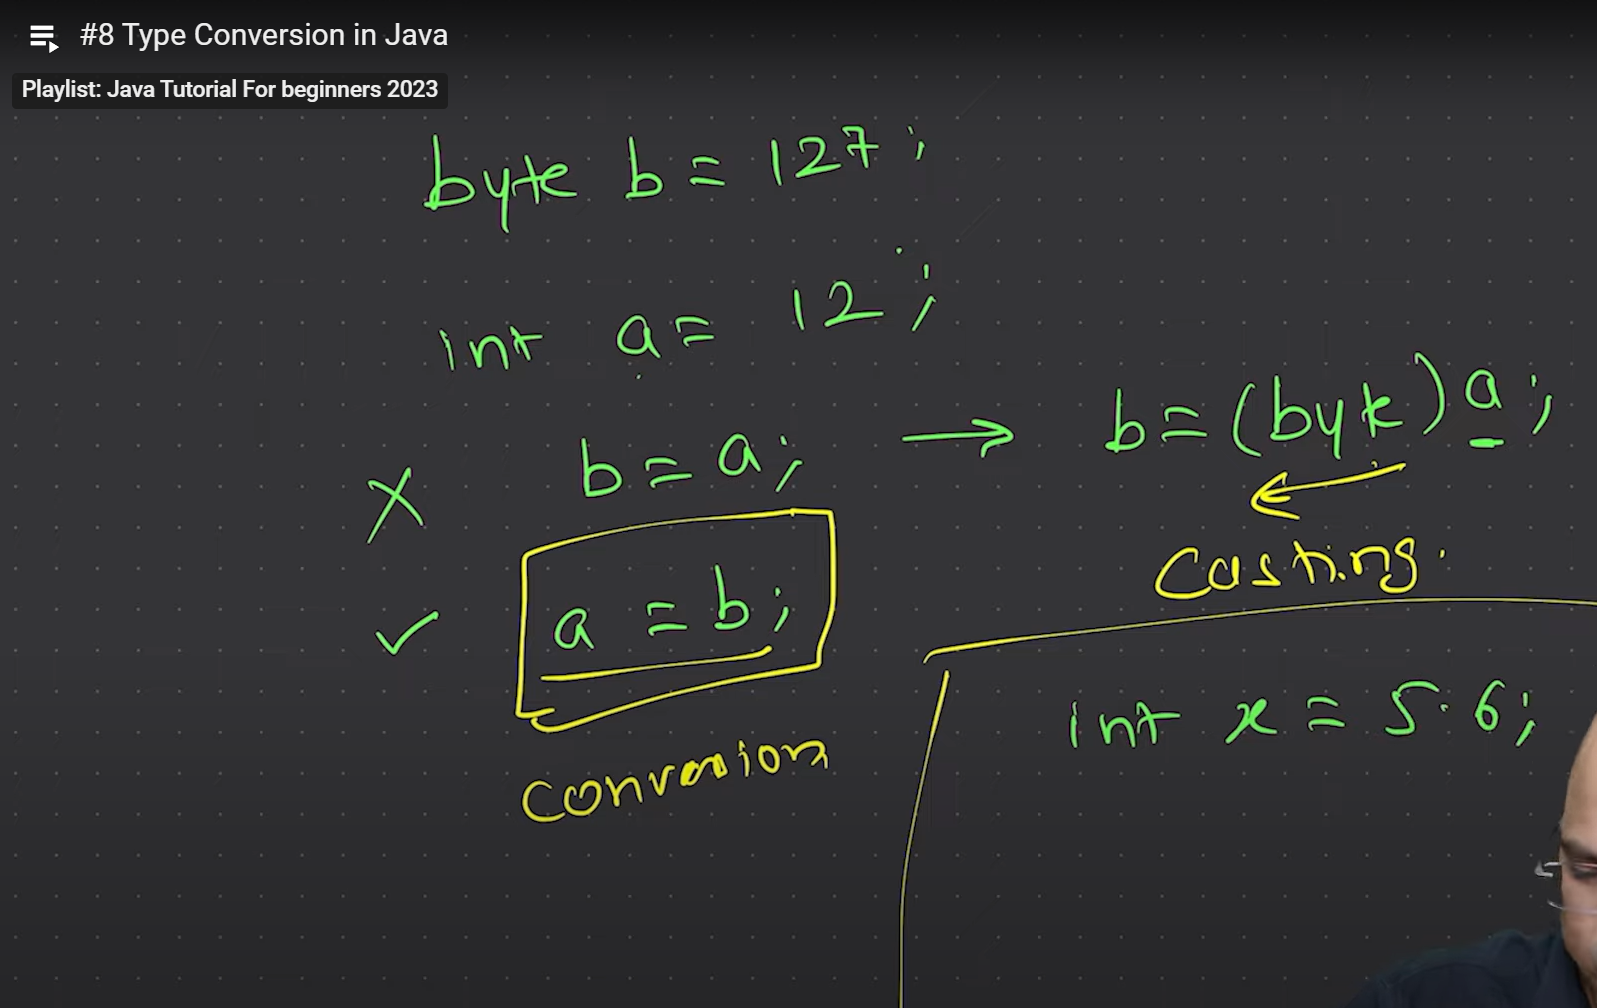 #8 Type Conversion in Java
Playlist: Java Tutorial For beginners 2023
byte b = 127;
int a = 12;
b = a; → b = (byte) a;
a = b;
Casting.
Conversion
int x = 5.6;